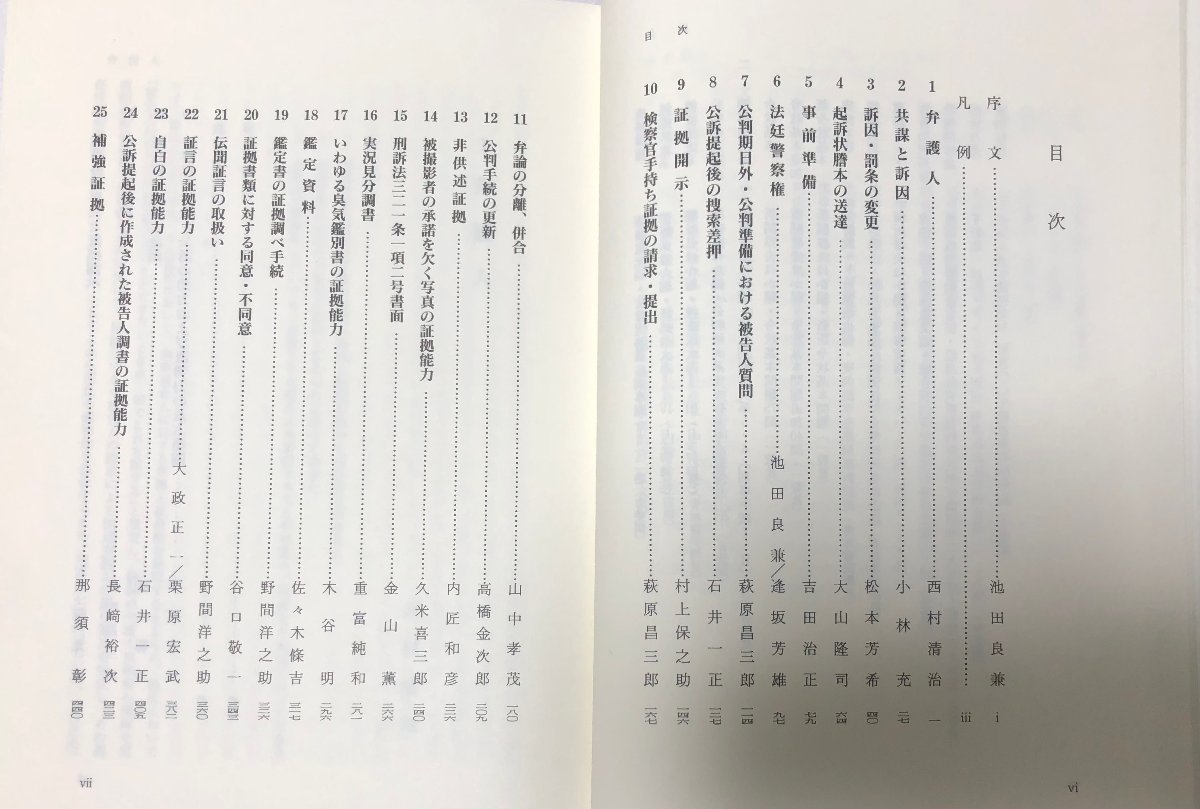 目次
目次
序文 池田良兼 i
凡例 iii
1 弁護人 西村清治 一
2 共謀と訴因 小林充 二七
3 訴因・罰条の変更 松本芳希 四〇
4 起訴状謄本の送達 大山隆司 六四
5 事前準備 吉田治正 七九
6 法廷警察権 池田良兼/逢坂芳雄 九七
7 公判期日外・公判準備における被告人質問 萩原昌三郎
8 公訴提起後の捜索差押 石井一正 一三七
9 証拠開示 村上保之助 一四六
10 検察官手持ち証拠の請求・提出 萩原昌三郎 一六七
vi
11 弁論の分離、併合 山中孝茂 一八〇
12 公判手続の更新 高橋金次郎 二〇九
13 非供述証拠 内匠和彦 二二六
14 被撮影者の承諾を欠く写真の証拠能力 久米喜三郎 二四〇
15 刑訴法三二一条一項二号書面 金山薫 二六六
16 実況見分調書 重富純和 二八一
17 いわゆる臭気鑑別書の証拠能力 木谷明 二九六
18 鑑定資料 佐々木條吉 三一七
19 鑑定書の証拠調べ手続 野間洋之助 三二六
20 証拠書類に対する同意・不同意 谷口敬一 三四三
21 伝聞証言の取扱い 野間洋之助 三六〇
22 証言の証拠能力 大政正一/栗原宏武 三八二
23 自白の証拠能力 石井一正 四〇五
24 公訴提起後に作成された被告人調書の証拠能力 長崎裕次 四二三
25 補強証拠 那須彰 四四〇
vii